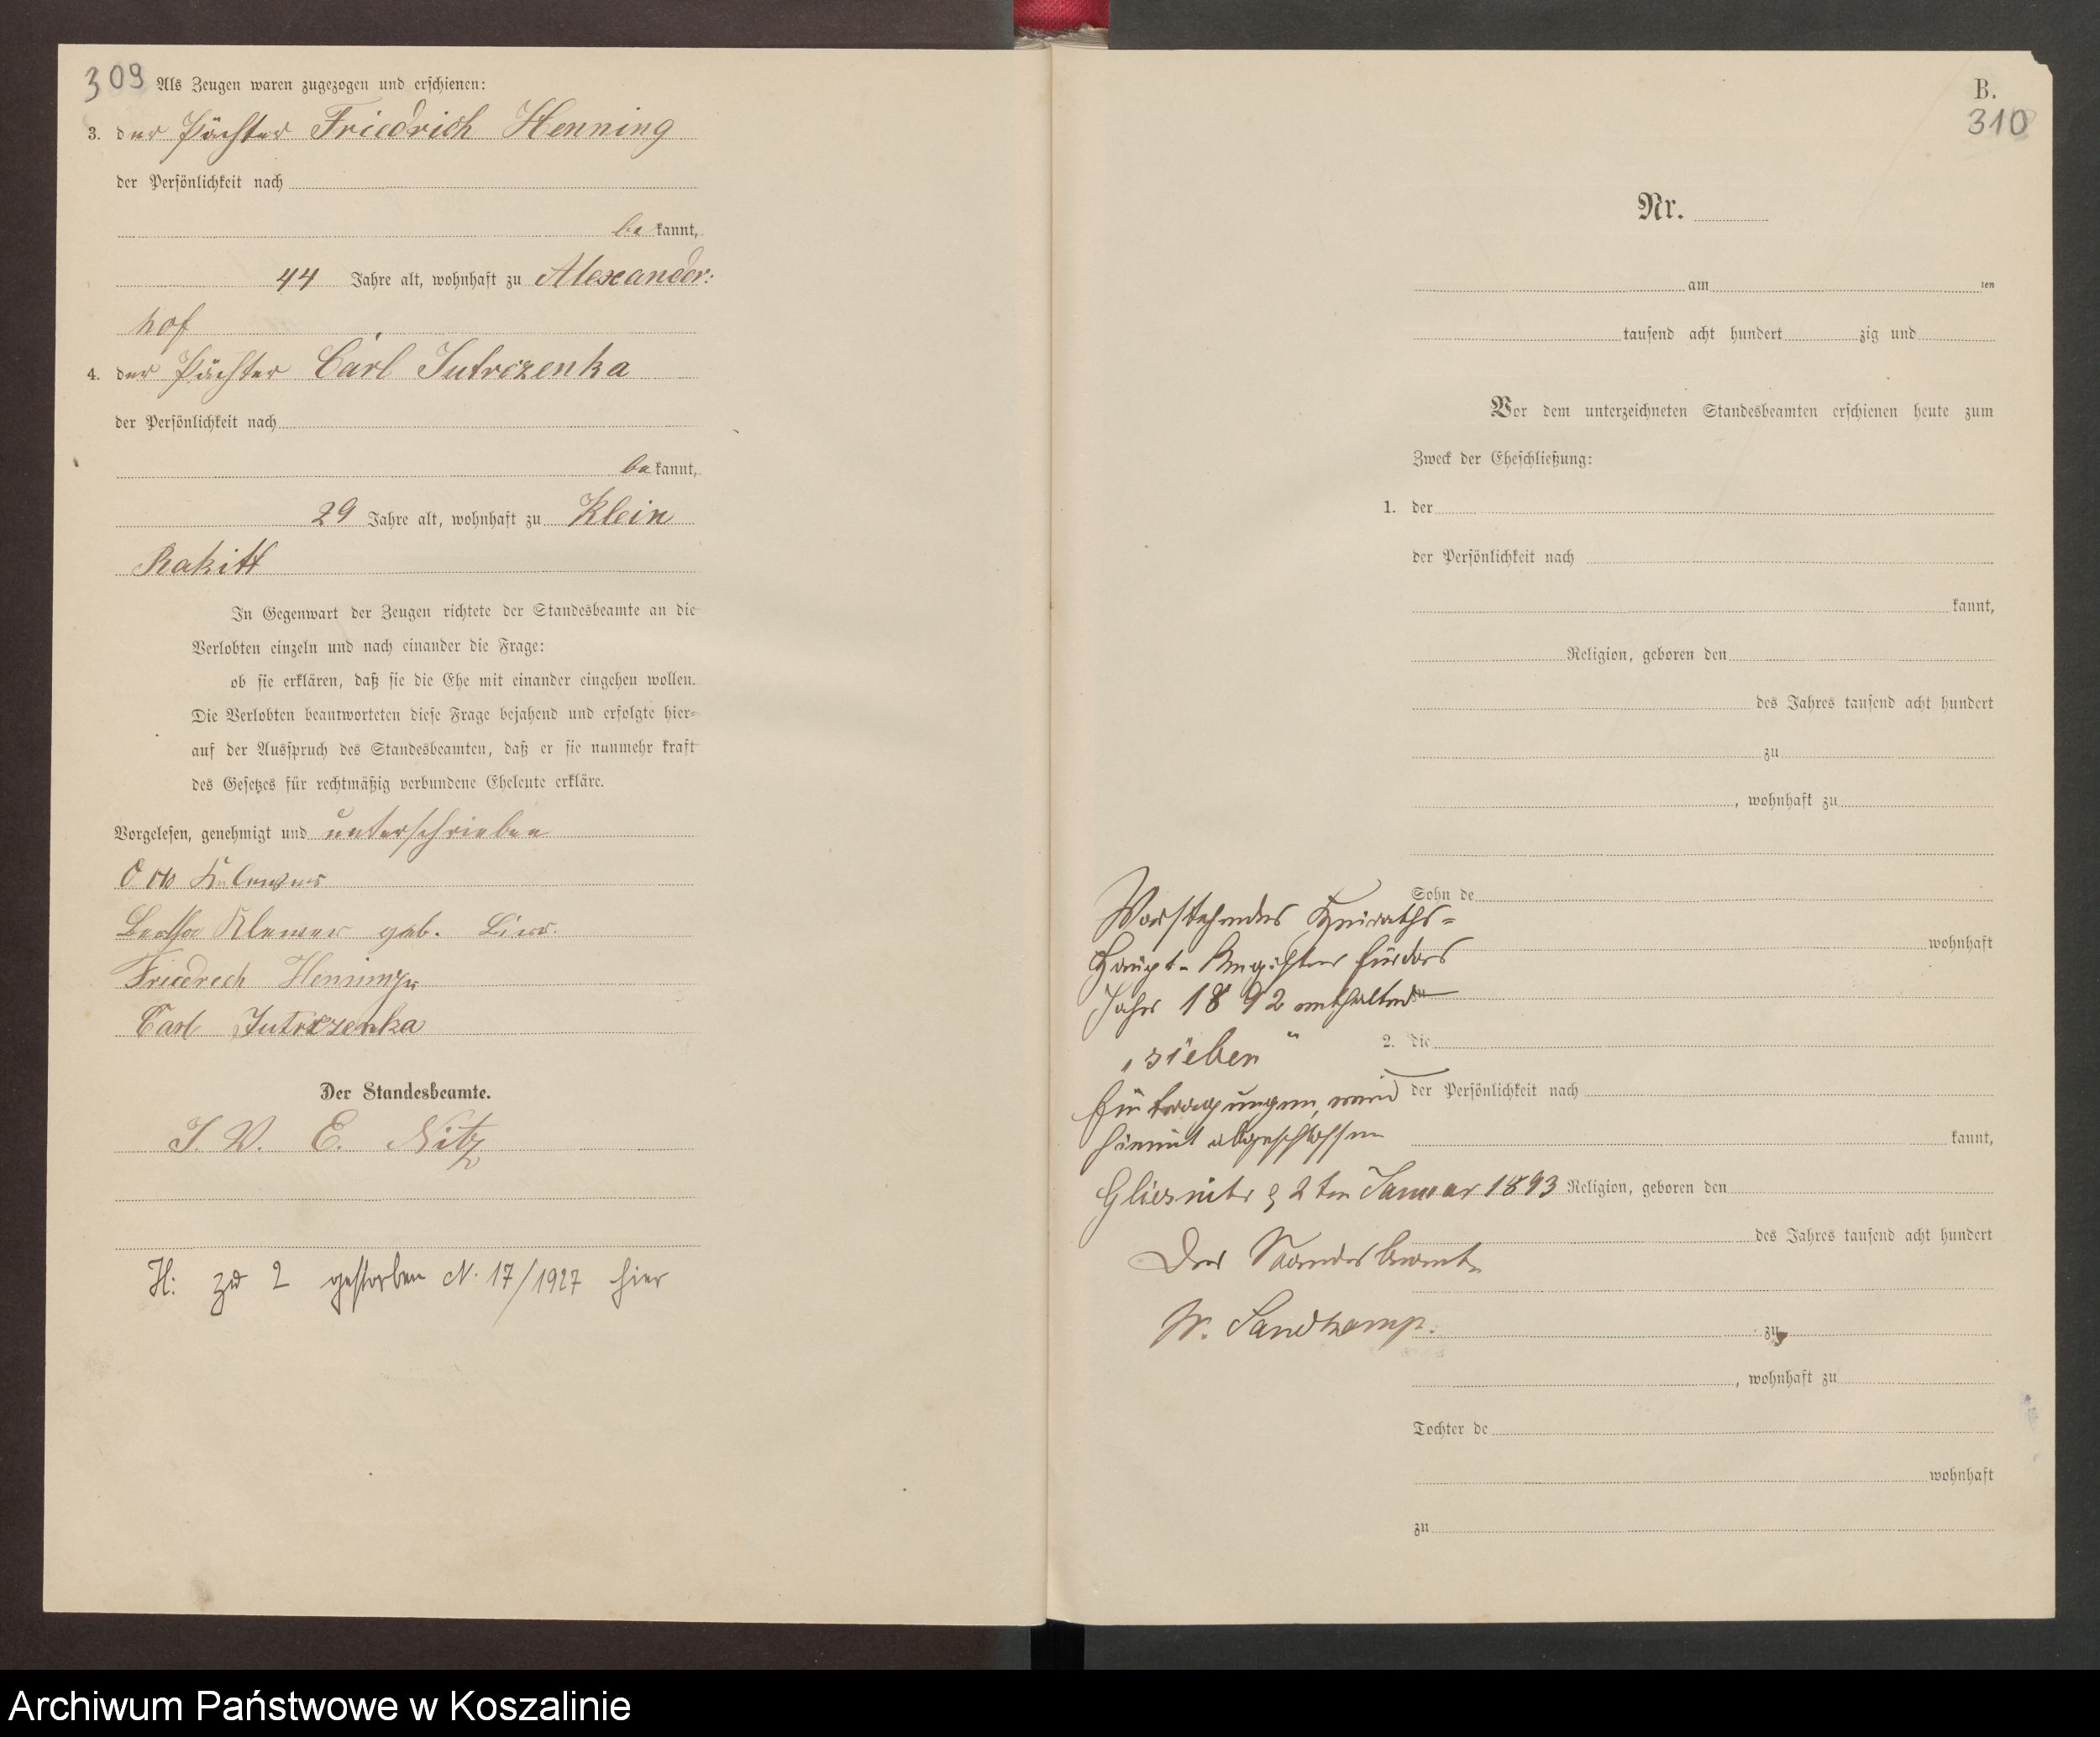 309 Als Zeugen waren zugezogen und erschienen:
3. der Pächter Friedrich Henning
der Persönlichkeit nach
be kannt,
44 Jahre alt, wohnhaft zu Alexander:
hof
4. der Pächter Carl Jutrczenka
der Persönlichkeit nach
be kannt,
29 Jahre alt, wohnhaft zu Klein
Rakitt
In Gegenwart der Zeugen richtete der Standesbeamte an die
Verlobten einzeln und nach einander die Frage:
ob sie erklären, daß sie die Ehe mit einander eingehen wollen.
Die Verlobten beantworteten diese Frage bejahend und erfolgte hier-
auf der Ausspruch des Standesbeamten, daß er sie nunmehr kraft
des Gesetzes für rechtmäßig verbundene Eheleute erkläre.
Vorgelesen, genehmigt und unterschrieben
Otto
Bertha Klemer geb.
Friedrech Henning
Carl Jutrczenka
Der Standesbeamte.
J. V. E. Nitz
H: zu 2 gestorben N. 17/1927 hier
B.
310
Nr.
am ten
tausend acht hundert zig und
Vor dem unterzeichneten Standesbeamten erschienen heute zum
Zweck der Eheschließung:
1. der
der Persönlichkeit nach
kannt,
Religion, geboren den
des Jahres tausend acht hundert
zu
, wohnhaft zu
Sohn de
wohnhaft
zu
2. die
der Persönlichkeit nach
kannt,
Religion, geboren den
des Jahres tausend acht hundert
zu
, wohnhaft zu
Tochter de
wohnhaft
zu
Vorstehendes Heiraths-
Haupt-Register für das
Jahr 1892 enthaltend
„sieben"
Eintragungen, wird
hiermit abgeschlossen
Gliesnitz d 2ten Januar 1893
Der Standesbeamte
W. Sandkamp.
Archiwum Państwowe w Koszalinie